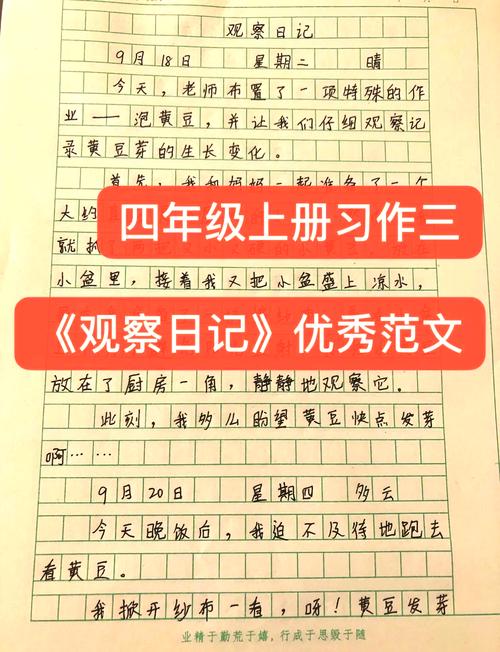 观察日记
9月18日 星期二 晴
今天，老师布置了一项特殊的作
业——泡黄豆，并让我们仔细观察记
录黄豆芽的生长变化。
首先，我和妈妈一起准备了一个
大约
四年级上册习作三
就抓了两把
小盆里，接着我又把小盆盛上凉水，
《观察日记》优秀范文
放在了厨房一角，静静地观察它。
此刻，我多么盼望黄豆快点发芽
啊……
9月20日 星期四 多云
今天晚饭后，我迫不及待地跑去
看黄豆。
我掀开纱布一看，呀！黄豆发芽
业精于勤荒于嬉，行成于思毁于随